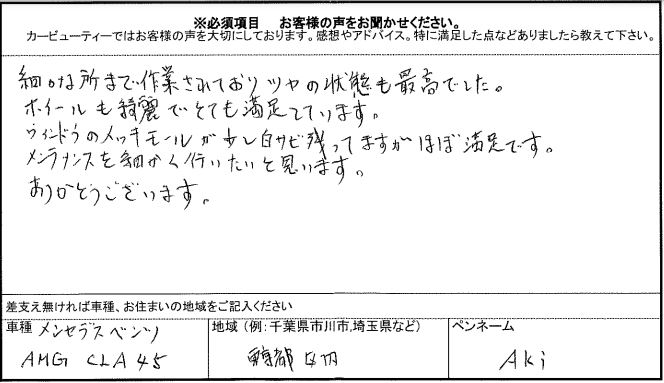 ※必須項目　お客様の声をお聞かせください。
カービューティーではお客様の声を大切にしております。感想やアドバイス。特に満足した点などありましたら教えて下さい。
細かな所まで作業されておりツヤの状態も最高でした。
ホイールも綺麗でとても満足しています。
ウィンドウのメッキモールが少し白サビ残ってますがほぼ満足です。
メンテナンスを細かく行いたいと思います。
ありがとうございます。
差支え無ければ車種、お住まいの地域をご記入ください
車種 メルセデスベンツ
AMG CLA45
地域（例：千葉県市川市,埼玉県など）
東京都
ペンネーム
Aki